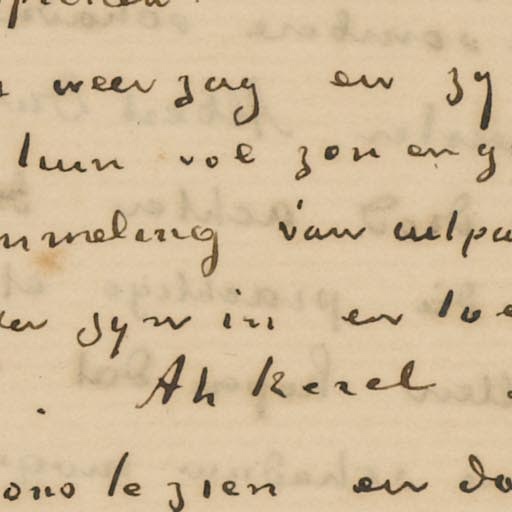 weer zag en zy
tuin vol zon en g
mmeling van uitpu
zyn in en toe
Ah kerel
ons te zien en do